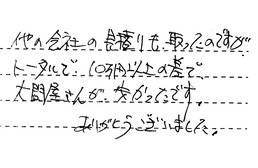 他の会社の見積りも取ったのですが
トータルで、10万円以上の差で、
太閤屋さんが、安かったです。
ありがとうございました。